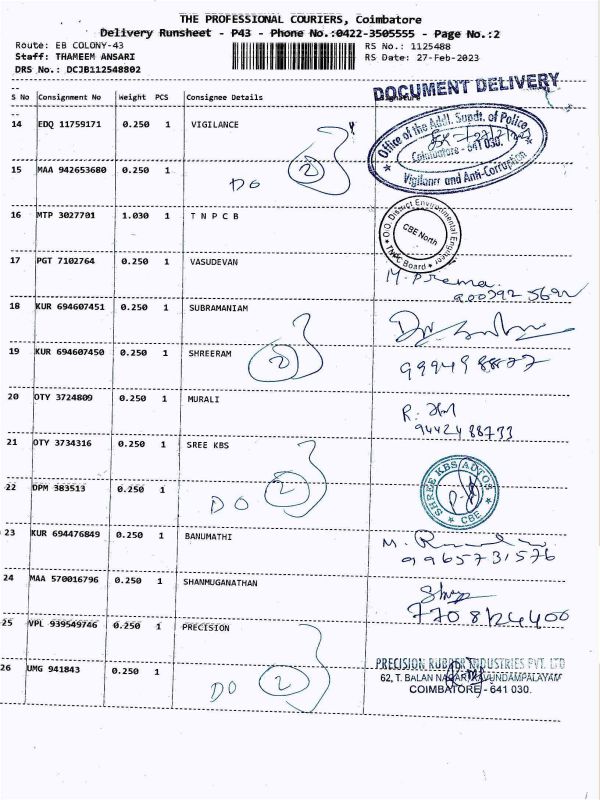 THE PROFESSIONAL COURIERS, Coimbatore
Delivery Runsheet - P43 - Phone No.:0422-3505555 - Page No.:2
Route: EB COLONY-43
Staff: THAMEEM ANSARI
DRS No.: DCJB112548802
RS No.: 1125488
RS Date: 27-Feb-2023
DOCUMENT DELIVERY
S No Consignment No Weight PCS Consignee Details
14 EDQ 11759171 0.250 1 VIGILANCE
Office of the Addl. Supdt. of Police
Coimbatore - 641 030.
Vigilance and Anti-Corruption
15 MAA 942653680 0.250 1
DO 2
16 MTP 3027701 1.030 1 T N P C B
O.O. District Environmental Engineer
CBE North
TNPC Board
17 PGT 7102764 0.250 1 VASUDEVAN
M. Prema
18 KUR 694607451 0.250 1 SUBRAMANIAM
19 KUR 694607450 0.250 1 SHREERAM
2
20 OTY 3724809 0.250 1 MURALI
9442488733
21 OTY 3734316 0.250 1 SREE KBS
SHREE KBS AUTOS
CBE
22 DPM 383513 0.250 1
DO 2
23 KUR 694476849 0.250 1 BANUMATHI
9965731576
24 MAA 570016796 0.250 1 SHANMUGANATHAN
25 VPL 939549746 0.250 1 PRECISION
26 UMG 941843 0.250 1
DO 2
PRECISION RUBBER INDUSTRIES PVT. LTD
62, T. BALAN NAGAR KAVUNDAMPALAYAM
COIMBATORE - 641 030.